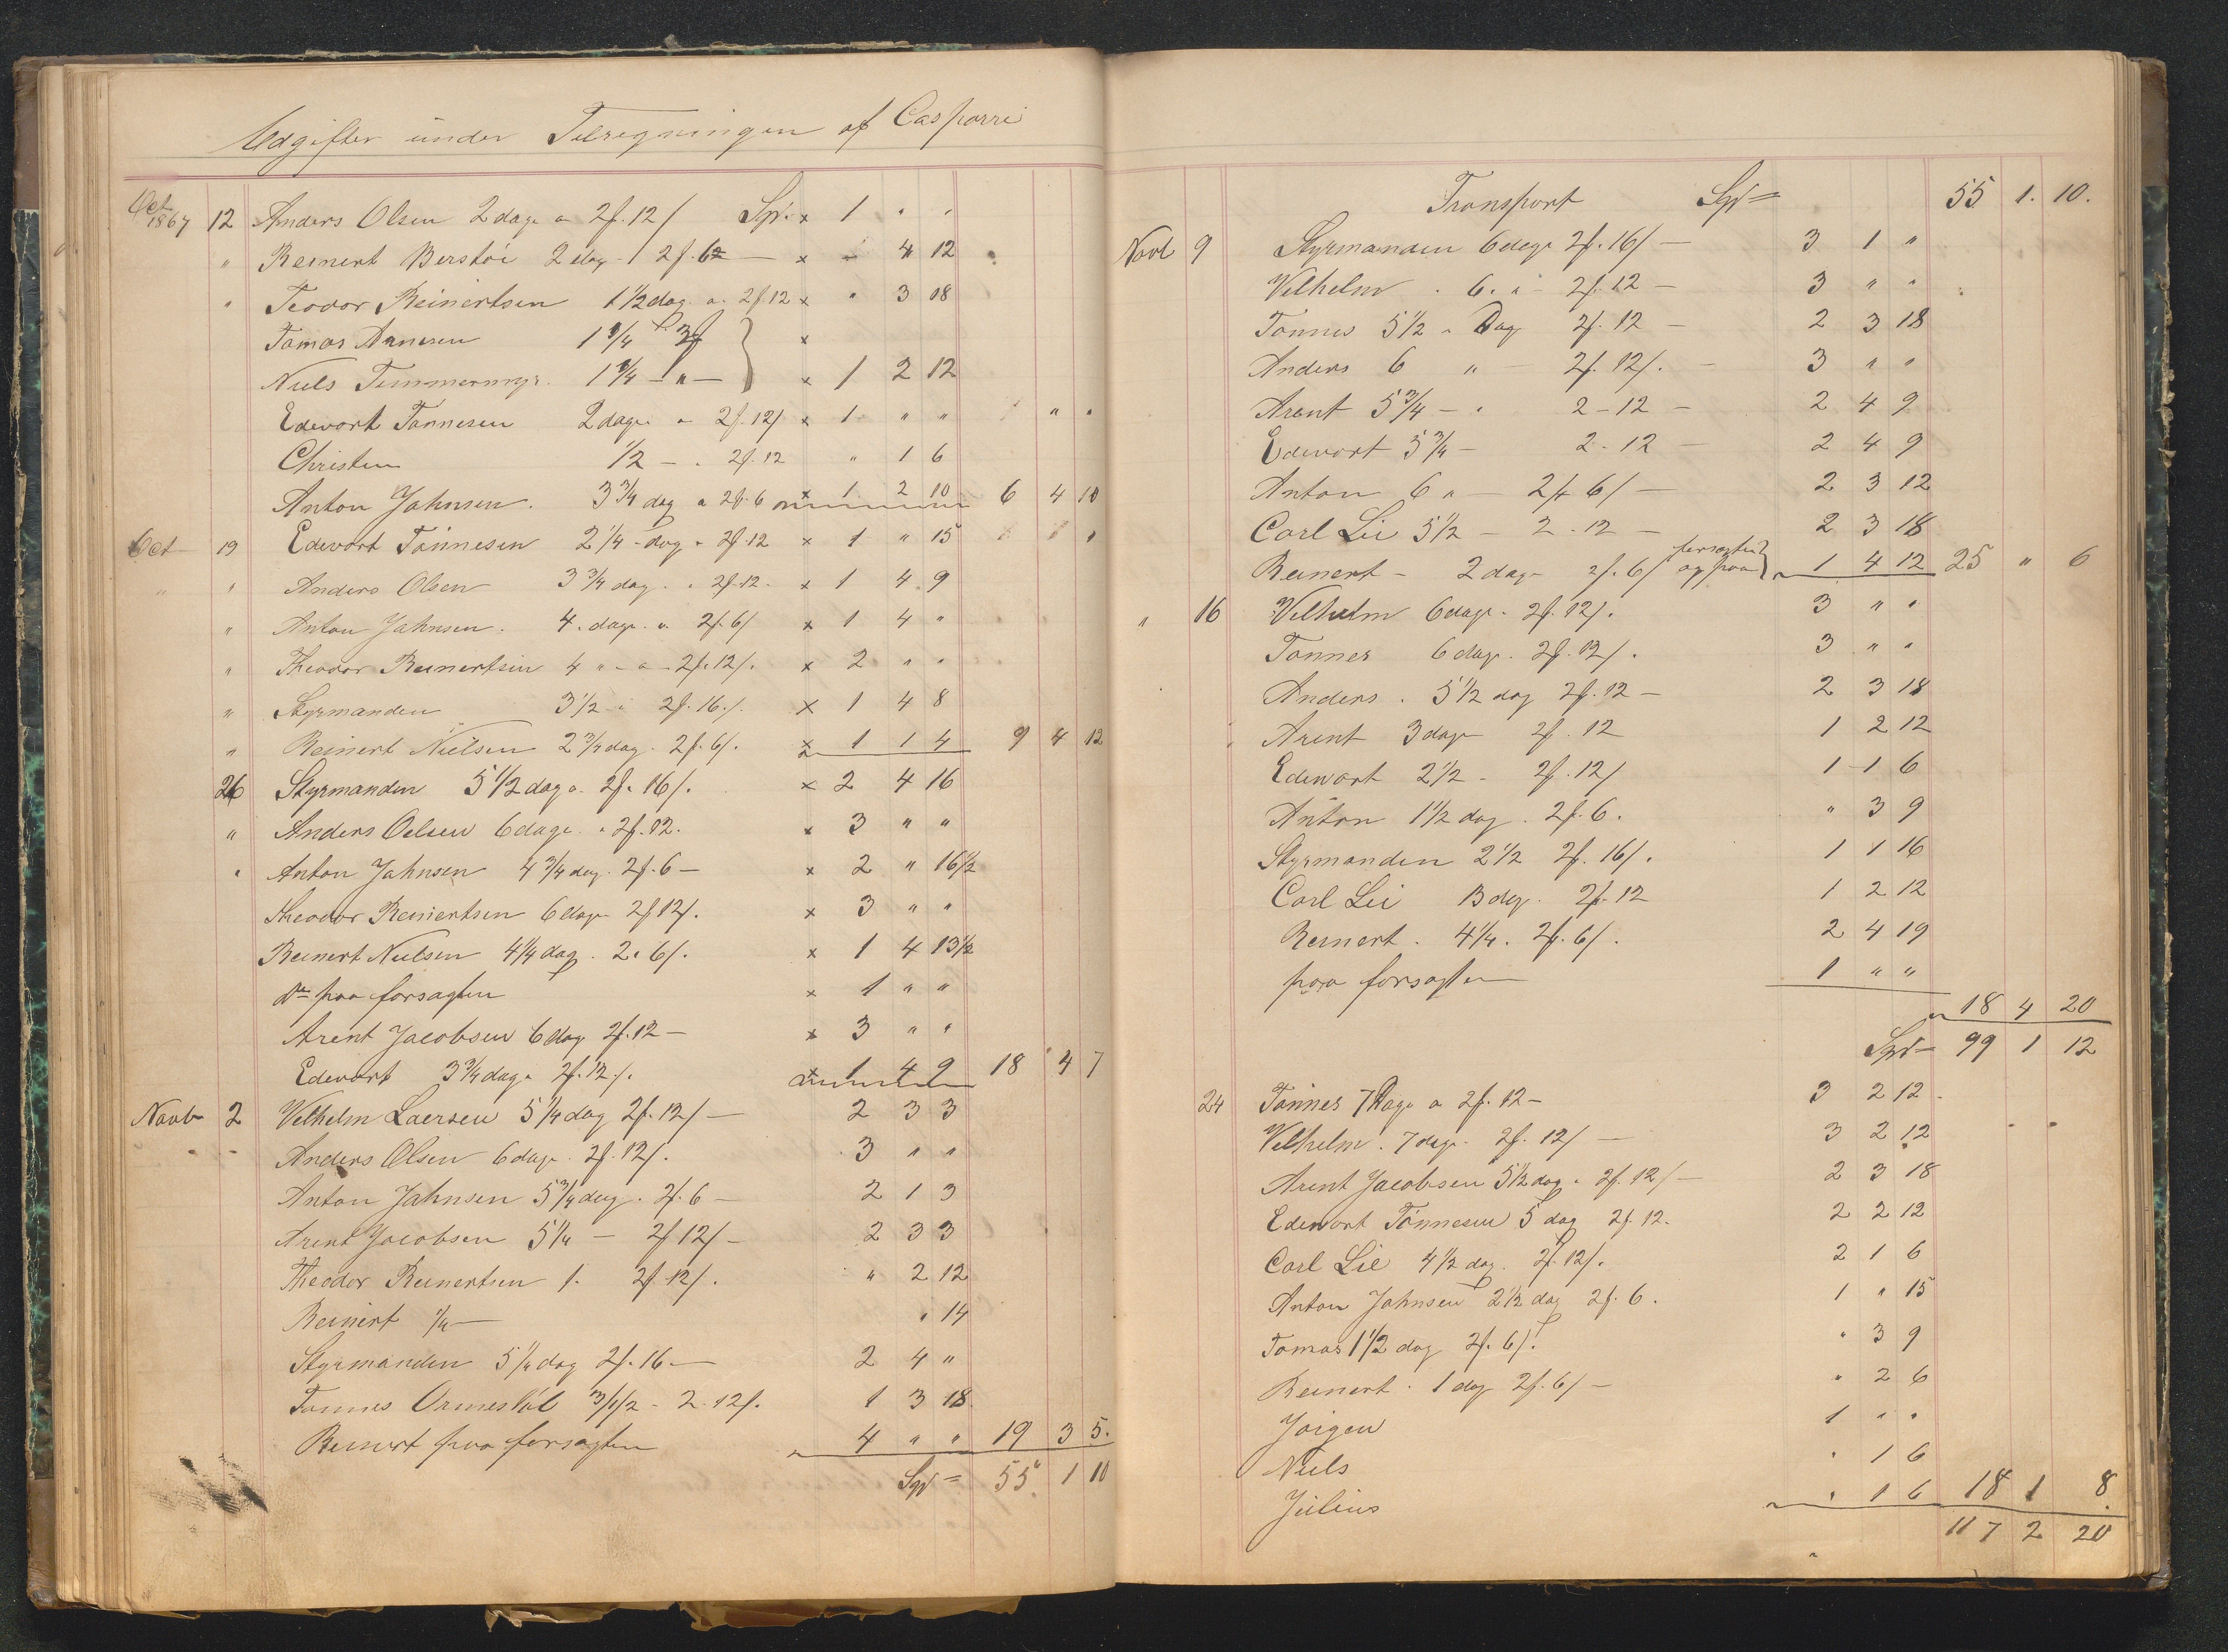 Udgifter under Tilregningen af Casparri
Oct 1867 12 Anders Olsen 2 dage a 2f. 12/ Spd. x 1 " "
" Reinert Berstöi 2 dag - 2f. 6 x - 4 12
" Teodor Reinertsen 1 1/2 dag a 2f 12 x " 3 18
Tomas Arnesen 1 1/4 x
Niels Timmermyr. 1 1/4 - " - x 1 2 12
Edevart Tönnesen 2 dage a 2f. 12/ x 1 " "
Christen 1/2 - " 2f. 12 " 1 6
Anton Jahnsen. 3 3/4 dag a 2f. 6 x 1 2 10 6 4 10
Oct 19 Edevart Tönnesen 2 1/4 - dag a 2f. 12 x 1 " 15
" " Anders Olsen 3 3/4 dag. a 2f. 12. x 1 4 9
" Anton Jahnsen. 4. dage. a 2f. 6/ x 1 4 "
" Theodor Reinertsen 4 " - a - 2f. 12/. x 2 " "
" Styrmanden 3 1/2 - " 2f. 16./. x 1 4 8
" Reinert Nielsen 2 3/4 dag. 2f. 6/. x 1 1 4 9 4 12
26 Styrmanden 5 1/2 dag a 2f. 16/. x 2 4 16
" Anders Oelsen 6 dage. a 2f. 12. x 3 " "
" Anton Jahnsen 4 3/4 dag. 2f. 6 - x 2 " 16 1/2
Theodor Reinertsen 6 dage 2f 12/. x 3 " "
Reinert Nielsen 4 1/4 dag. 2. 6/. x 1 4 13 1/2
do paa forsagten x 1 " "
Arent Jacobsen 6 dag 2f. 12 - x 3 " "
Edevart 3 3/4 dag a 2f. 12/. x 1 4 9 18 4 7
Novb 2 Velhelm Laersen 5 1/4 dag 2f. 12/ - 2 3 3
" " Anders Olsen 6 dage. 2f. 12/. 3 " "
Anton Jahnsen 5 3/4 dag. 2f. 6 - 2 1 3
Arent Jacobsen 5 1/4 - 2f 12/ - 2 3 3
Theodor Reinertsen 1. 2f. 12/. " 2 12
Reinert 1/4 - " 14
Styrmanden 5 1/4 dag 2f. 16. - 2 4 "
Tönnes Ormeslöl 3 1/2 - 2. 12/. 1 3 18
Reinert paa forsagten 4 " " 19 3 5.
Spd = 55 1 10
Transport Spd = 55 1. 10.
Novb 9 Styrmanden 6 dage 2f. 16/ - 3 1 "
Velhelm . 6. a - 2f. 12 - 3 " "
Tönnes 5 1/2 a Dag 2f. 12 - 2 3 18
Anders 6 " - 2f. 12/. - 3 " "
Arent 5 3/4 - " 2 - 12 - 2 4 9
Edevart 5 3/4 - 2 - 12 - 2 4 9
Anton 6 " - 2f 6/ - 2 3 12
Carl Lie 5 1/2 - 2 - 12 - 2 3 18
Reinert - 2 dage 2f. 6/ forsagten og paa 1 4 12 25 " 6
" 16 Velhelm 6 dage. 2f. 12/. 3 " "
Tönnes 6 dage. 2f. 12/. 3 " "
Anders . 5 1/2 dag 2f. 12 - 2 3 18
Arent 3 dage 2f. 12 1 2 12
Edevart 2 1/2 - 2f. 12/ 1 1 6
Anton 1 1/2 dag. 2f. 6. " 3 9
Styrmanden 2 1/2 2f. 16/. 1 1 16
Carl Lie 3 dag. 2f. 12 1 2 12
Reinert. 4 1/4. 2f. 6/. 2 4 19
paa forsagten 1 " "
18 4 20
Spd - 99 1 12
24 Tönnes 7 Dage a 2f. 12 - 3 2 12
Velhelm. 7 dage. 2f. 12/ - 3 2 12
Arent Jacobsen 5 1/2 dag a 2f. 12/ - 2 3 18
Edevart Tönnesen 5 dag 2f. 12. 2 2 12
Carl Lie 4 1/2 dag. 2f. 12/. 2 1 6
Anton Jahnsen 2 1/2 dag 2f. 6. 1 " 15
Tomas 1 1/2 dag 2f. 6/. " 3 9
Reinert. 1 dag 2f. 6/ - " 2 6
Jörgen 1 " "
Niels " 1 6
Julius " 1 6 18 1 8
117 2 20